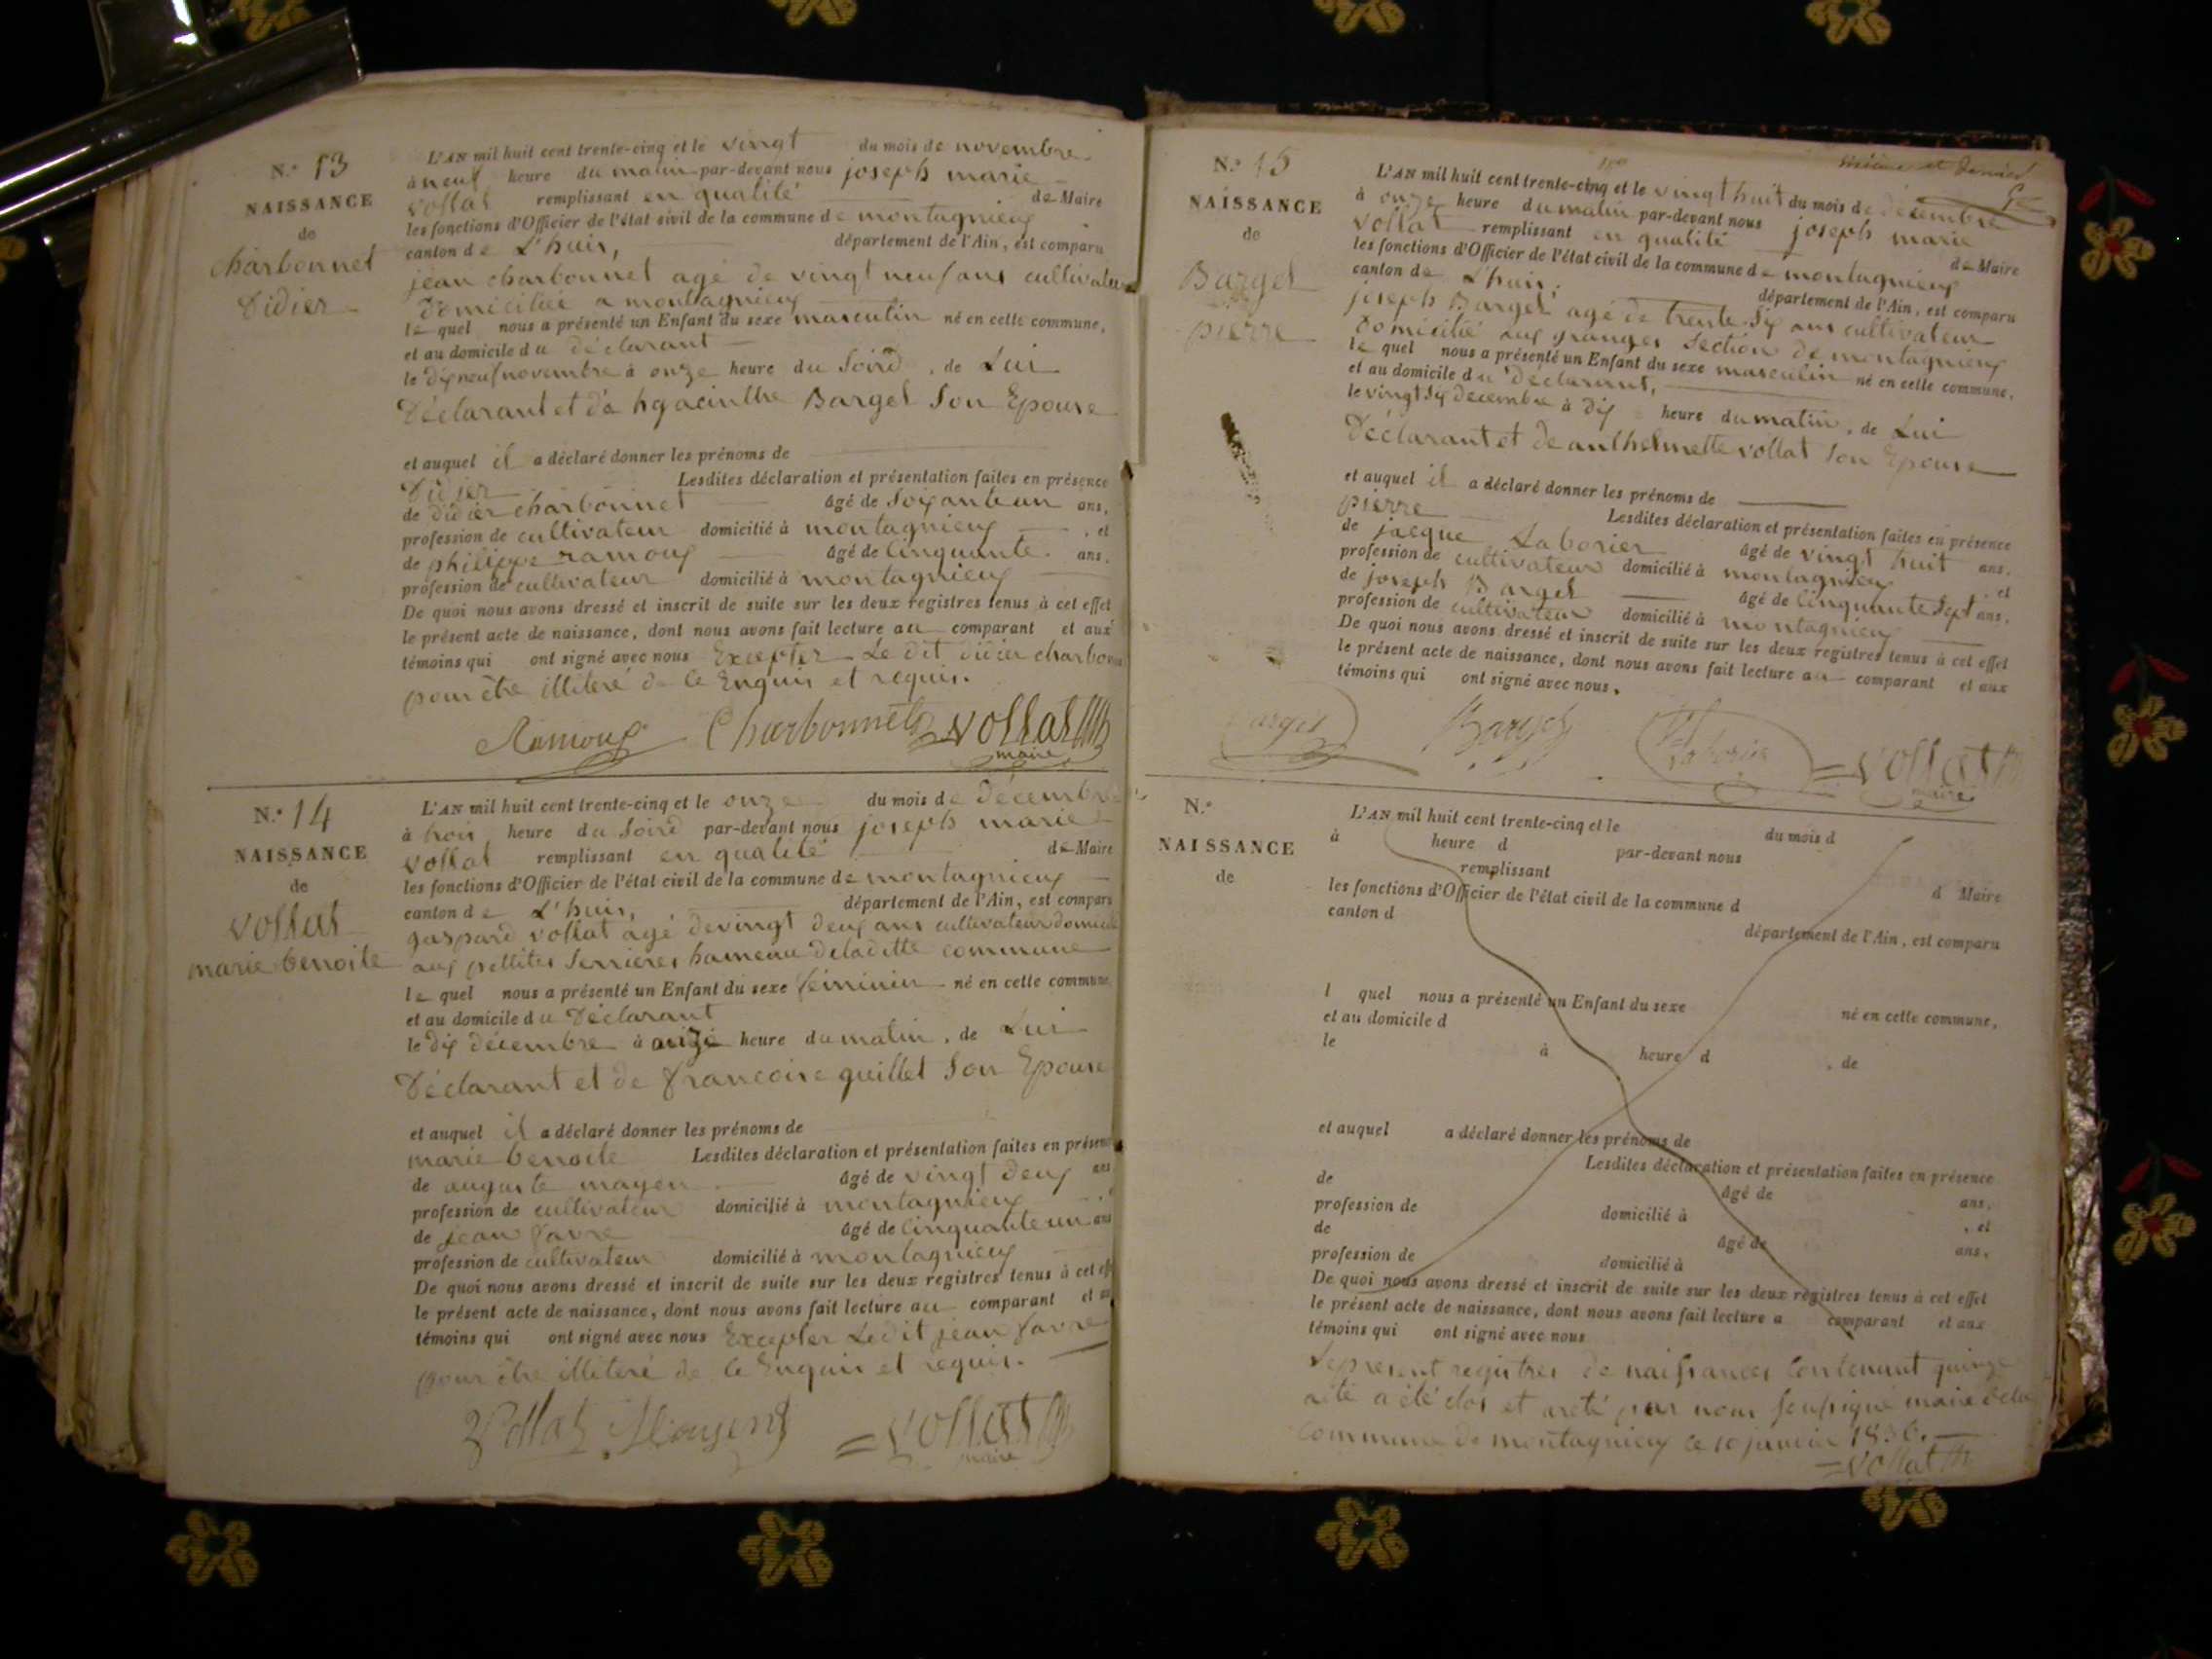 N.º 13
NAISSANCE
de
charbonnet
Didier
L'AN mil huit cent trente-cinq et le vingt du mois de novembre
à neuf heure du matin par-devant nous joseph marie
vollat remplissant en qualité de Maire
les fonctions d'Officier de l'état civil de la commune de montagnieux
canton de L'huis, département de l'Ain, est comparu
jean charbonnet agé de vingt neuf ans cultivateur
domiciliée a montagnieux
le quel nous a présenté un Enfant du sexe masculin né en cette commune,
et au domicile du déclarant
le dix neuf novembre à onze heure du soird, de Lui
Déclarant et de hyacinthe Barget son Epouse
et auquel il a déclaré donner les prénoms de
Didier Lesdites déclaration et présentation faites en présence
de didier charbonnet âgé de soixante un ans,
profession de cultivateur domicilié à montagnieux, et
de philippe ramoux âgé de cinquante ans.
profession de cultivateur domicilié à montagnieux
De quoi nous avons dressé et inscrit de suite sur les deux registres tenus à cet effet
le présent acte de naissance, dont nous avons fait lecture au comparant et aux
témoins qui ont signé avec nous Excepter Le dit didier charbonnet
pour être illiteré de ce Enquis et requis.
Ramoux Charbonnet vollat
maire
N.º 14
NAISSANCE
de
vollat
marie benoite
L'AN mil huit cent trente-cinq et le onze du mois de décembre
à trois heure du soird par-devant nous joseph marie
vollat remplissant en qualité de Maire
les fonctions d'Officier de l'état civil de la commune de montagnieux
canton de L'huis, département de l'Ain, est comparu
gaspard vollat agé de vingt deux ans cultivateur domicilié
aux pettites serrieres hameau de la ditte commune
le quel nous a présenté un Enfant du sexe féminin né en cette commune,
et au domicile du Déclarant
le dix décembre à heure du matin, de Lui
Déclarant et de francoise quillet son Epouse
et auquel il a déclaré donner les prénoms de
marie benoite Lesdites déclaration et présentation faites en présence
de auguste mayen âgé de vingt deux ans
profession de cultivateur domicilié à montagnieux
de jean favre âgé de cinquante un ans
profession de cultivateur domicilié à montagnieux
De quoi nous avons dressé et inscrit de suite sur les deux registres tenus à cet eff
le présent acte de naissance, dont nous avons fait lecture au comparant et au
témoins qui ont signé avec nous Excepter Ledit jean favre
pour être illiteré de ce Enquis et requis.
Vollat Mayen vollat
maire
N.º 15
NAISSANCE
de
Barget
pierre
L'AN mil huit cent trente-cinq et le vingt huit du mois de décembre
à onze heure du matin par-devant nous joseph marie
vollat remplissant en qualité de Maire
les fonctions d'Officier de l'état civil de la commune de montagnieux
canton de L'huis, département de l'Ain, est comparu
joseph Barget agé de trente six ans cultivateur
domicilié aux granges section de montagnieux
le quel nous a présenté un Enfant du sexe masculin né en cette commune,
et au domicile du Déclarant,
le vingt six decembre à dix heure du matin, de Lui
Déclarant et de anthelmette vollat son Epouse
et auquel il a déclaré donner les prénoms de
pierre Lesdites déclaration et présentation faites en présence
de jacque Laborier âgé de vingt huit ans,
profession de cultivateur domicilié à montagnieux, et
de joseph Barget âgé de cinquante sept ans,
profession de cultivateur domicilié à montagnieux
De quoi nous avons dressé et inscrit de suite sur les deux registres tenus à cet effet
le présent acte de naissance, dont nous avons fait lecture au comparant et aux
témoins qui ont signé avec nous.
Barget Barget Laborier vollat
maire
N.º
NAISSANCE
de
L'AN mil huit cent trente-cinq et le du mois d
à heure d par-devant nous
remplissant d Maire
les fonctions d'Officier de l'état civil de la commune d
canton d département de l'Ain, est comparu
l quel nous a présenté un Enfant du sexe né en cette commune,
et au domicile d
le à heure d , de
et auquel a déclaré donner les prénoms de
Lesdites déclaration et présentation faites en présence
de âgé de ans,
profession de domicilié à , et
de âgé de ans,
profession de domicilié à
De quoi nous avons dressé et inscrit de suite sur les deux registres tenus à cet effet
le présent acte de naissance, dont nous avons fait lecture a comparant et aux
témoins qui ont signé avec nous
Le present registres de naissances contenant quinze
acte a été clos et areté par nous soussigné maire de la
commune de montagnieux le 10 janvier 1836.
vollat